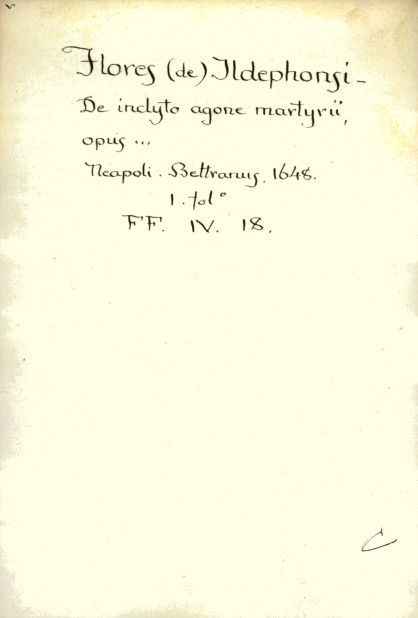 Flores (de) Ildephonsi -
De inclyto agone martyrii,
opus ...
Neapoli. Beltranus. 1648.
1. fol°
FF. IV. 18.
C